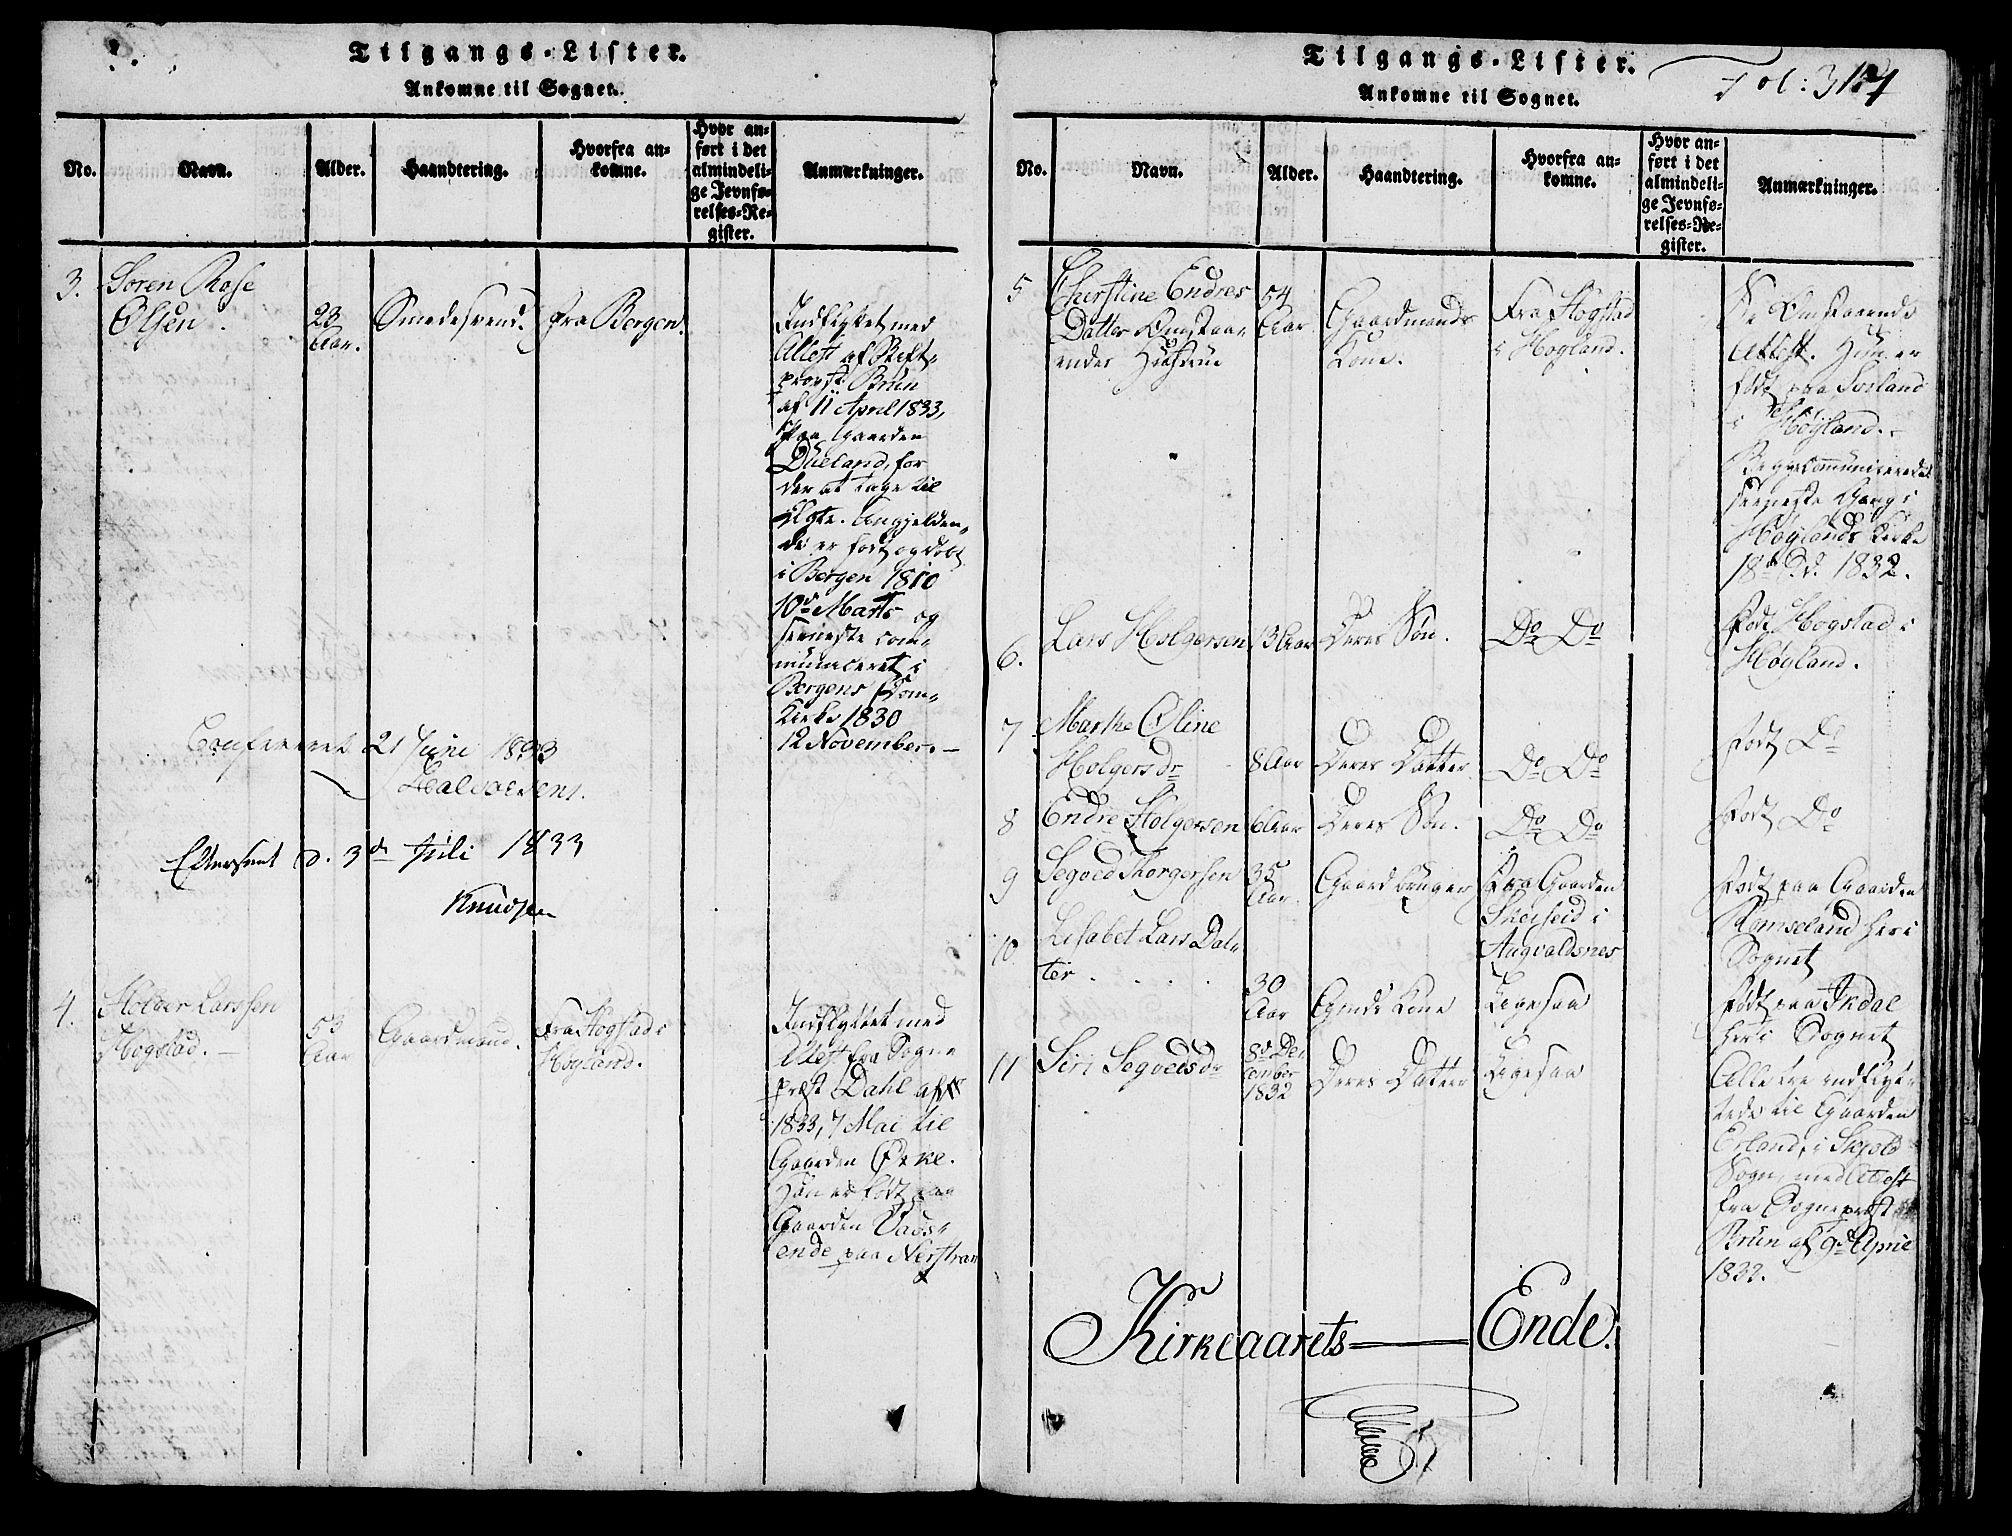 Tilgangs-Lister.
Ankomne til Sognet.
No.
Navn.
Alder.
Haandtering.
Hvorfra an-
komne.
Hvor an-
ført i det
almindeli-
ge Jevnfø-
relses-Re-
gister.
Anmærkninger.
3.
Soren Rose
Olsen.
23
Aar.
Smedesvend.
fra Bergen.
Indflyttet med
Attest af Stift-
provst Brun
af 11 April 1833,
paa Gaarden
Dueland, for
der at tage til
Ægte. Angjelden-
de er født og døbt
i Bergen 1810
10de Marts og
seeneste com-
municeret i
Bergens Dom-
kirke 1830
12 November. —
Confereret 21 Juni 1833
Halvorsen.
Efterseet d. 3de Juli 1833
Knudsen
4.
Holger Larssen
Hogstad. —
53
Aar
Gaardmand.
Fra Hogstad i
Høyland.
Indflyttet med
Attest fra Sogne
præst Dahl af
1833, 7 Mai til
Gaarden Ørke.
Han er født paa
Gaarden
ende paa Nerstran
Tilgangs-Lister.
Ankomne til Sognet.
Fol: 314
No.
Navn.
Alder.
Haandtering.
Hvorfra an-
komne.
Hvor an-
ført i det
almindeli-
ge Jevnfø-
relses-Re-
gister.
Anmærkninger.
5
Christine Endres
Datter Omstaa-
endes Hustrue
54
Aar
Gaardmands
Kone.
Fra Hogstad
i Høgland.
Omstaaende
Attest. Hun er
født paa
i Høyland.
Begge communicerede
seeneste Gang i
Høylands Kirke
1832.
6.
Lars Holgersen
13 Aar
Deres Søn.
Do Do
Født Hogstad i
Høyland.
7
Marthe Oline
Holgersdr
8 Aar
Deres Datter
Do Do
Født Do
8
Endre Holgersen
6 Aar
Deres Søn.
Do Do
Født Do
9
Segved Thorgersen
35
Aar.
Gaardbruger
Fra Gaarden
Skeiseid i
Augvaldsnes
Født paa Gaarden
Romseland her i
Sognet
10
Lisabet Lars Dat-
ter . . . .
30
Aar
Hands Kone
Ligesaa
Født paa Ikdal
her i Sognet
11
Siri Segvedsdr
8de De-
cember
1832
Deres Datter
Ligesaa
Alle tre indflyt-
tede til Gaarden
Erland, i Skjold
Sogn, med Attest
fra Sognepræst
Brun af 9de April
1832.
Kirkeaarets — Ende.